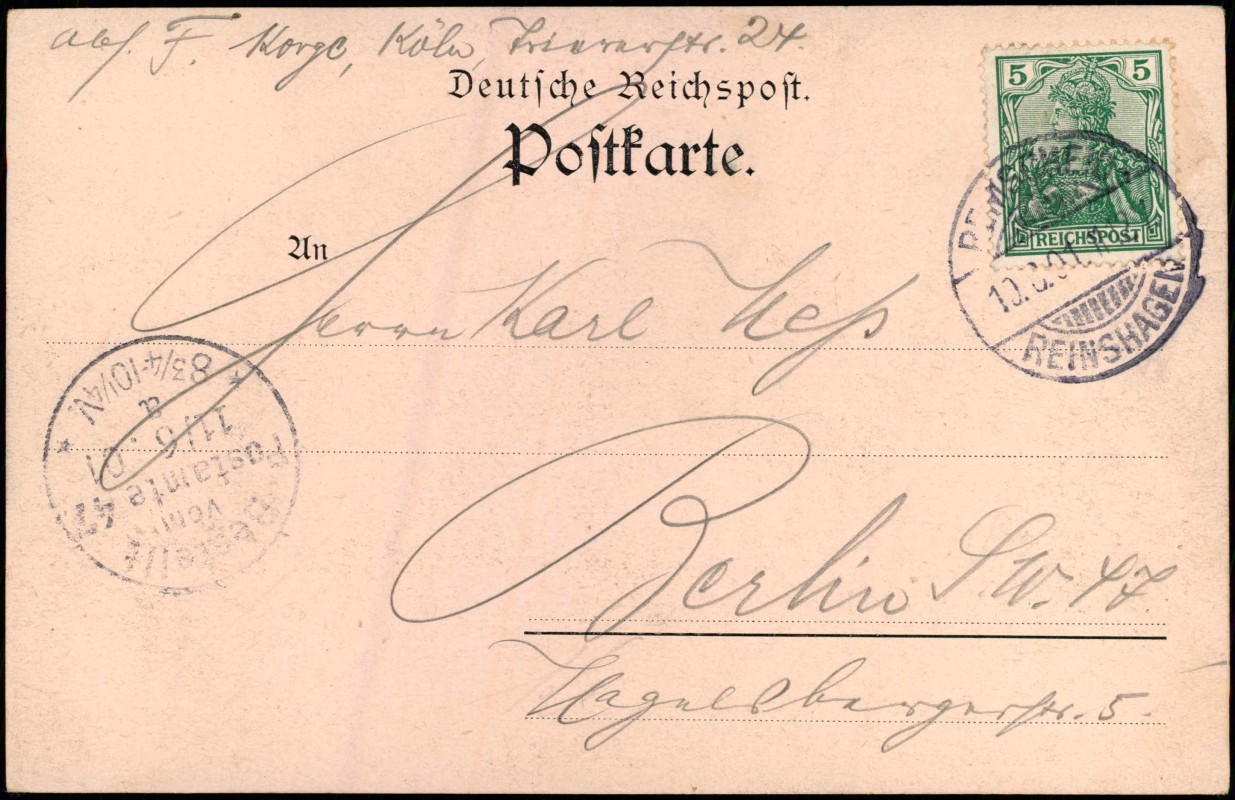 Abs. F. Korge, Köln, Triererstr. 24.
Deutsche Reichspost.
Postkarte.
5 5
REICHSPOST
REMSCHEID
10.6.01.
REINSHAGEN
An
Herrn Karl Heß
Berlin S.W. 47
Hagelsbergerstr. 5.
Bestellt
vom
Postamte 47
11/6.01
8 3/4-10 1/4 N.